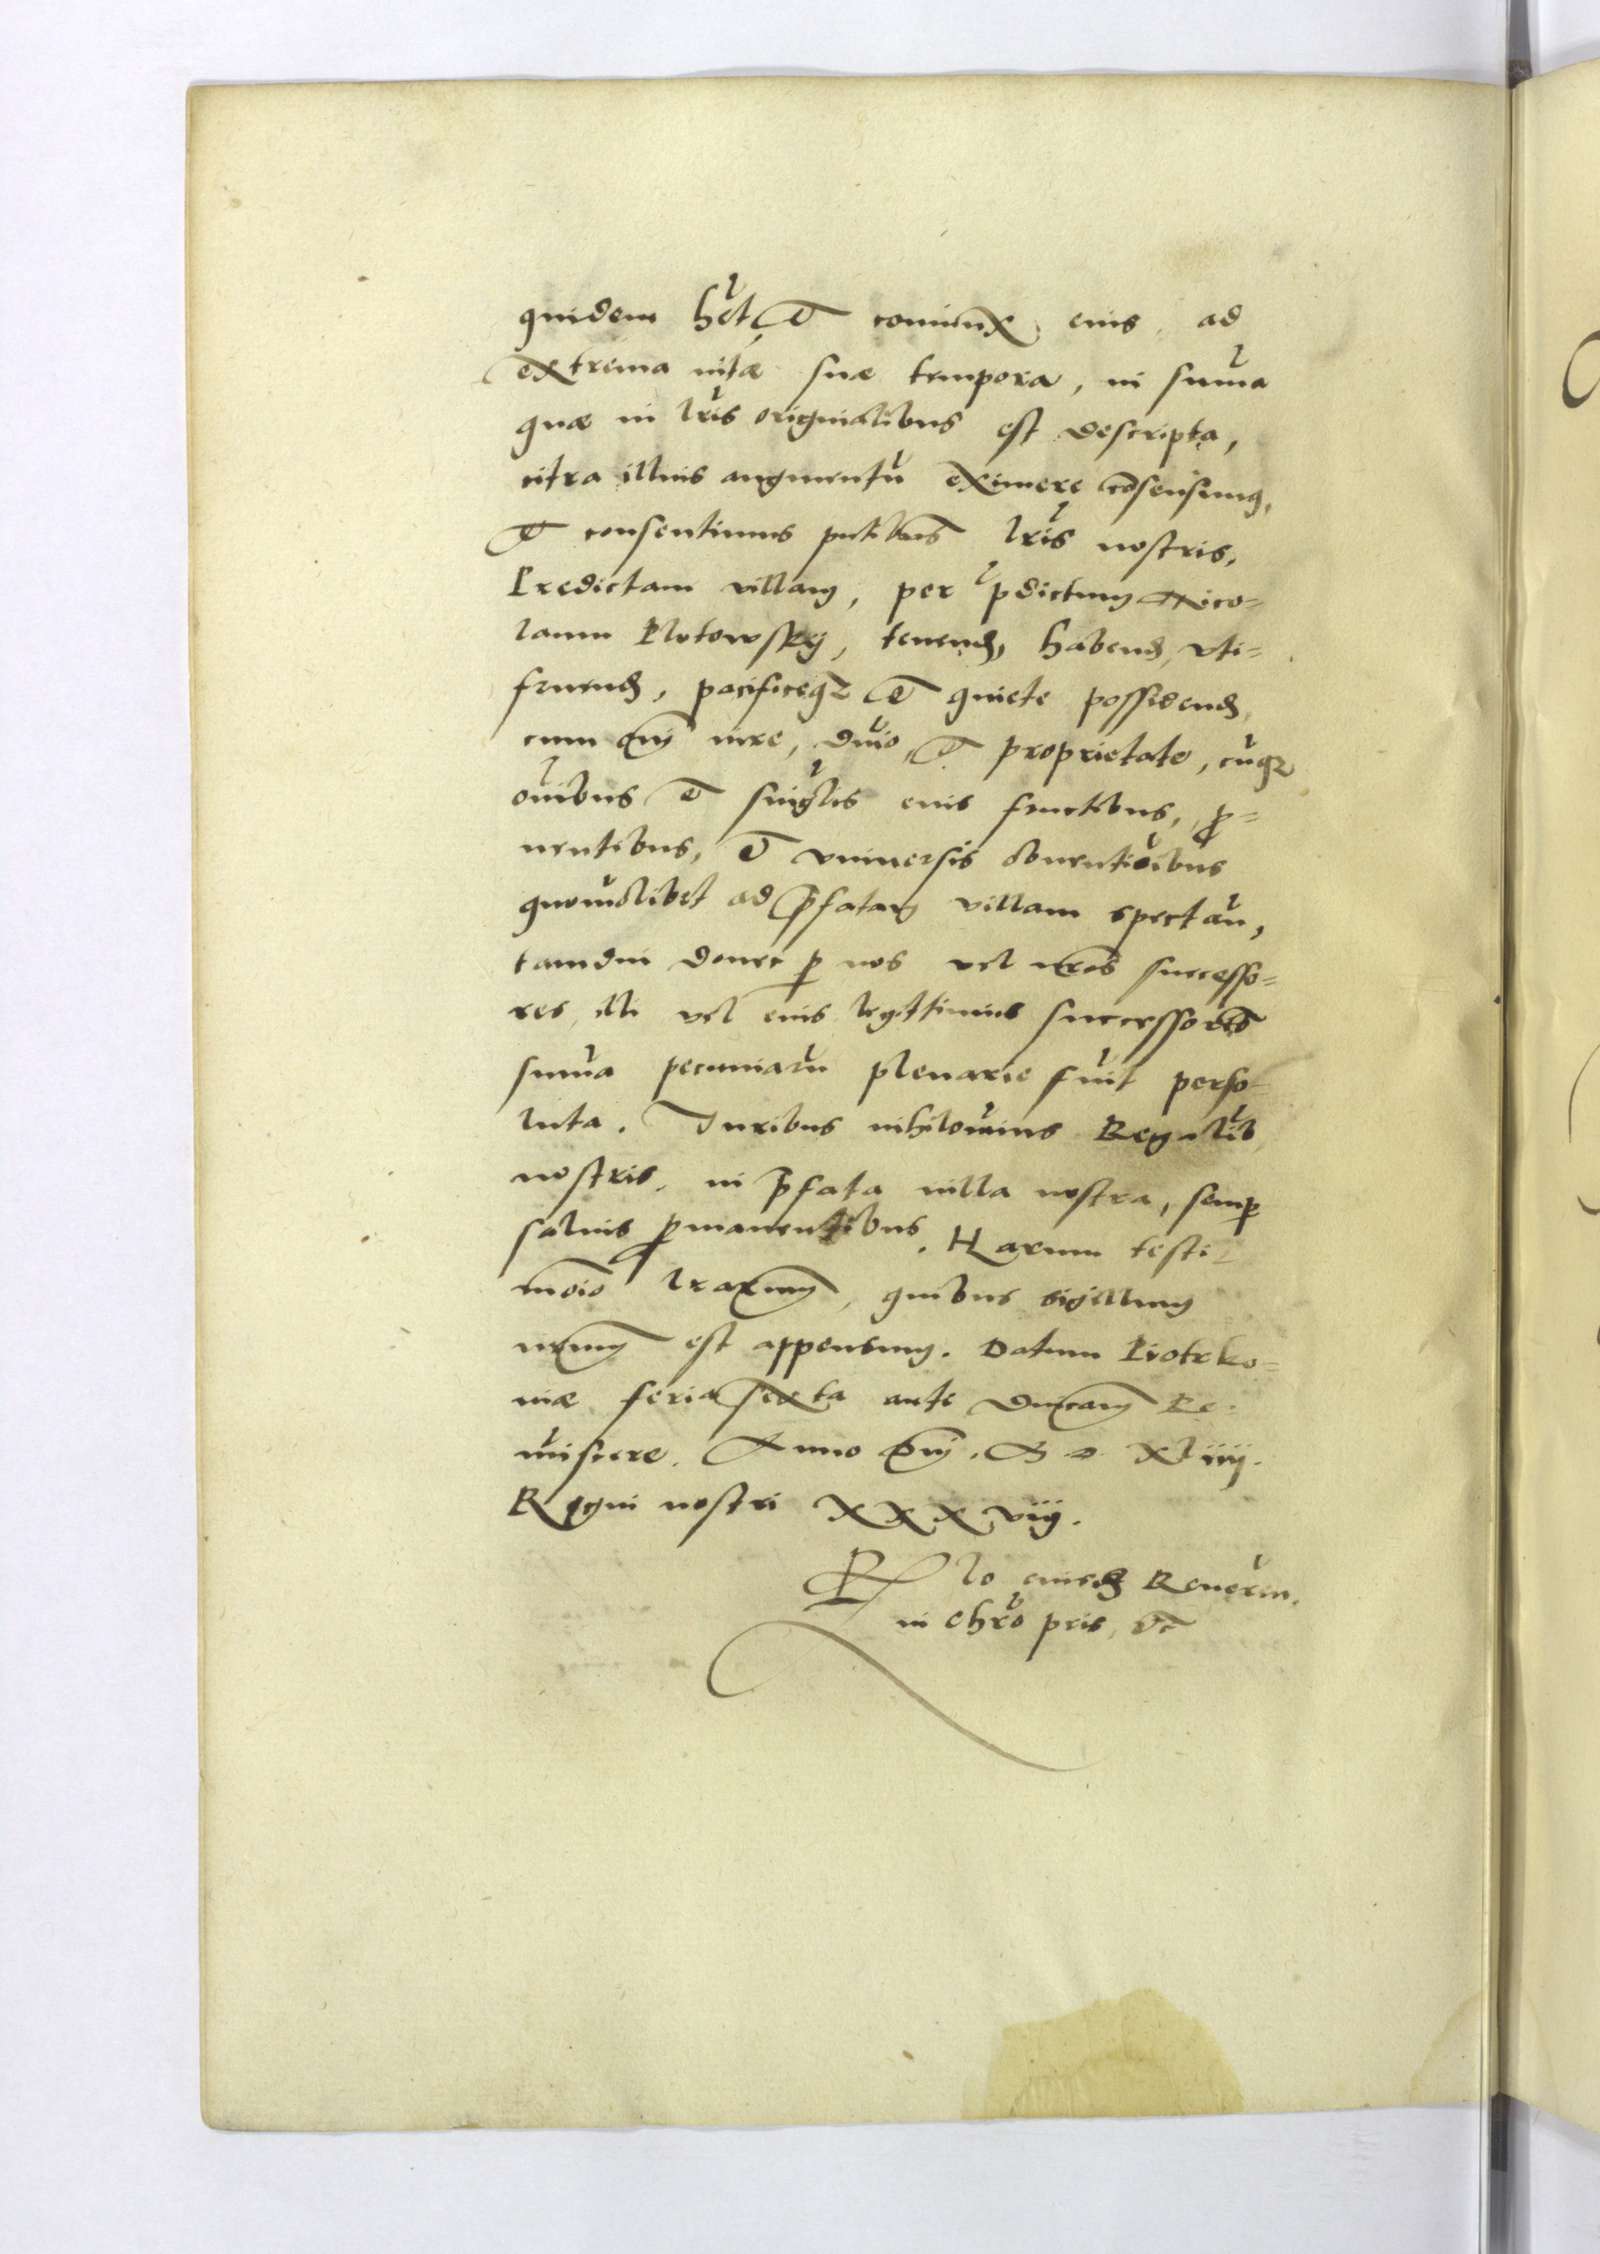 quidem hēt, et coniunx eius, ad
extrema uitæ suæ tempora, in suma
quæ in lris originalibus est descripta,
citra illius augmentū eximere cōsensimus,
et consentimus pntibus lris nostris.
Predictam villam, per pdictum Nico=
laum Plotowsky, tenend, habend, vti=
fruend, pacificeq et quiete possidend,
cum omī iure, dnio, et proprietate, cūq
oibus et singlis eius fructibus, pro=
uentibus, et vniuersis obuentioibus
quomolibet ad pfatam villam spectan,
tamdiu donec p nos vel nros successo=
res, illi vel eius legittimis successoribus
suma pecuniarū plenarie fuit perso=
luta. Iuribus nihilominus Regalib
nostris, in pfata uilla nostra, semp
saluis pmanentibus. Harum testi=
monio lrarum, quibus sigillum
nrum est appensum. Datum Piotrko=
uiæ feria sexta ante Dnicam Re=
miscere. Anno Dnj. M D XLiiij.
Regni nostri XXXviij.
Rlo eiusd Reueren.
in Chro pris, etc